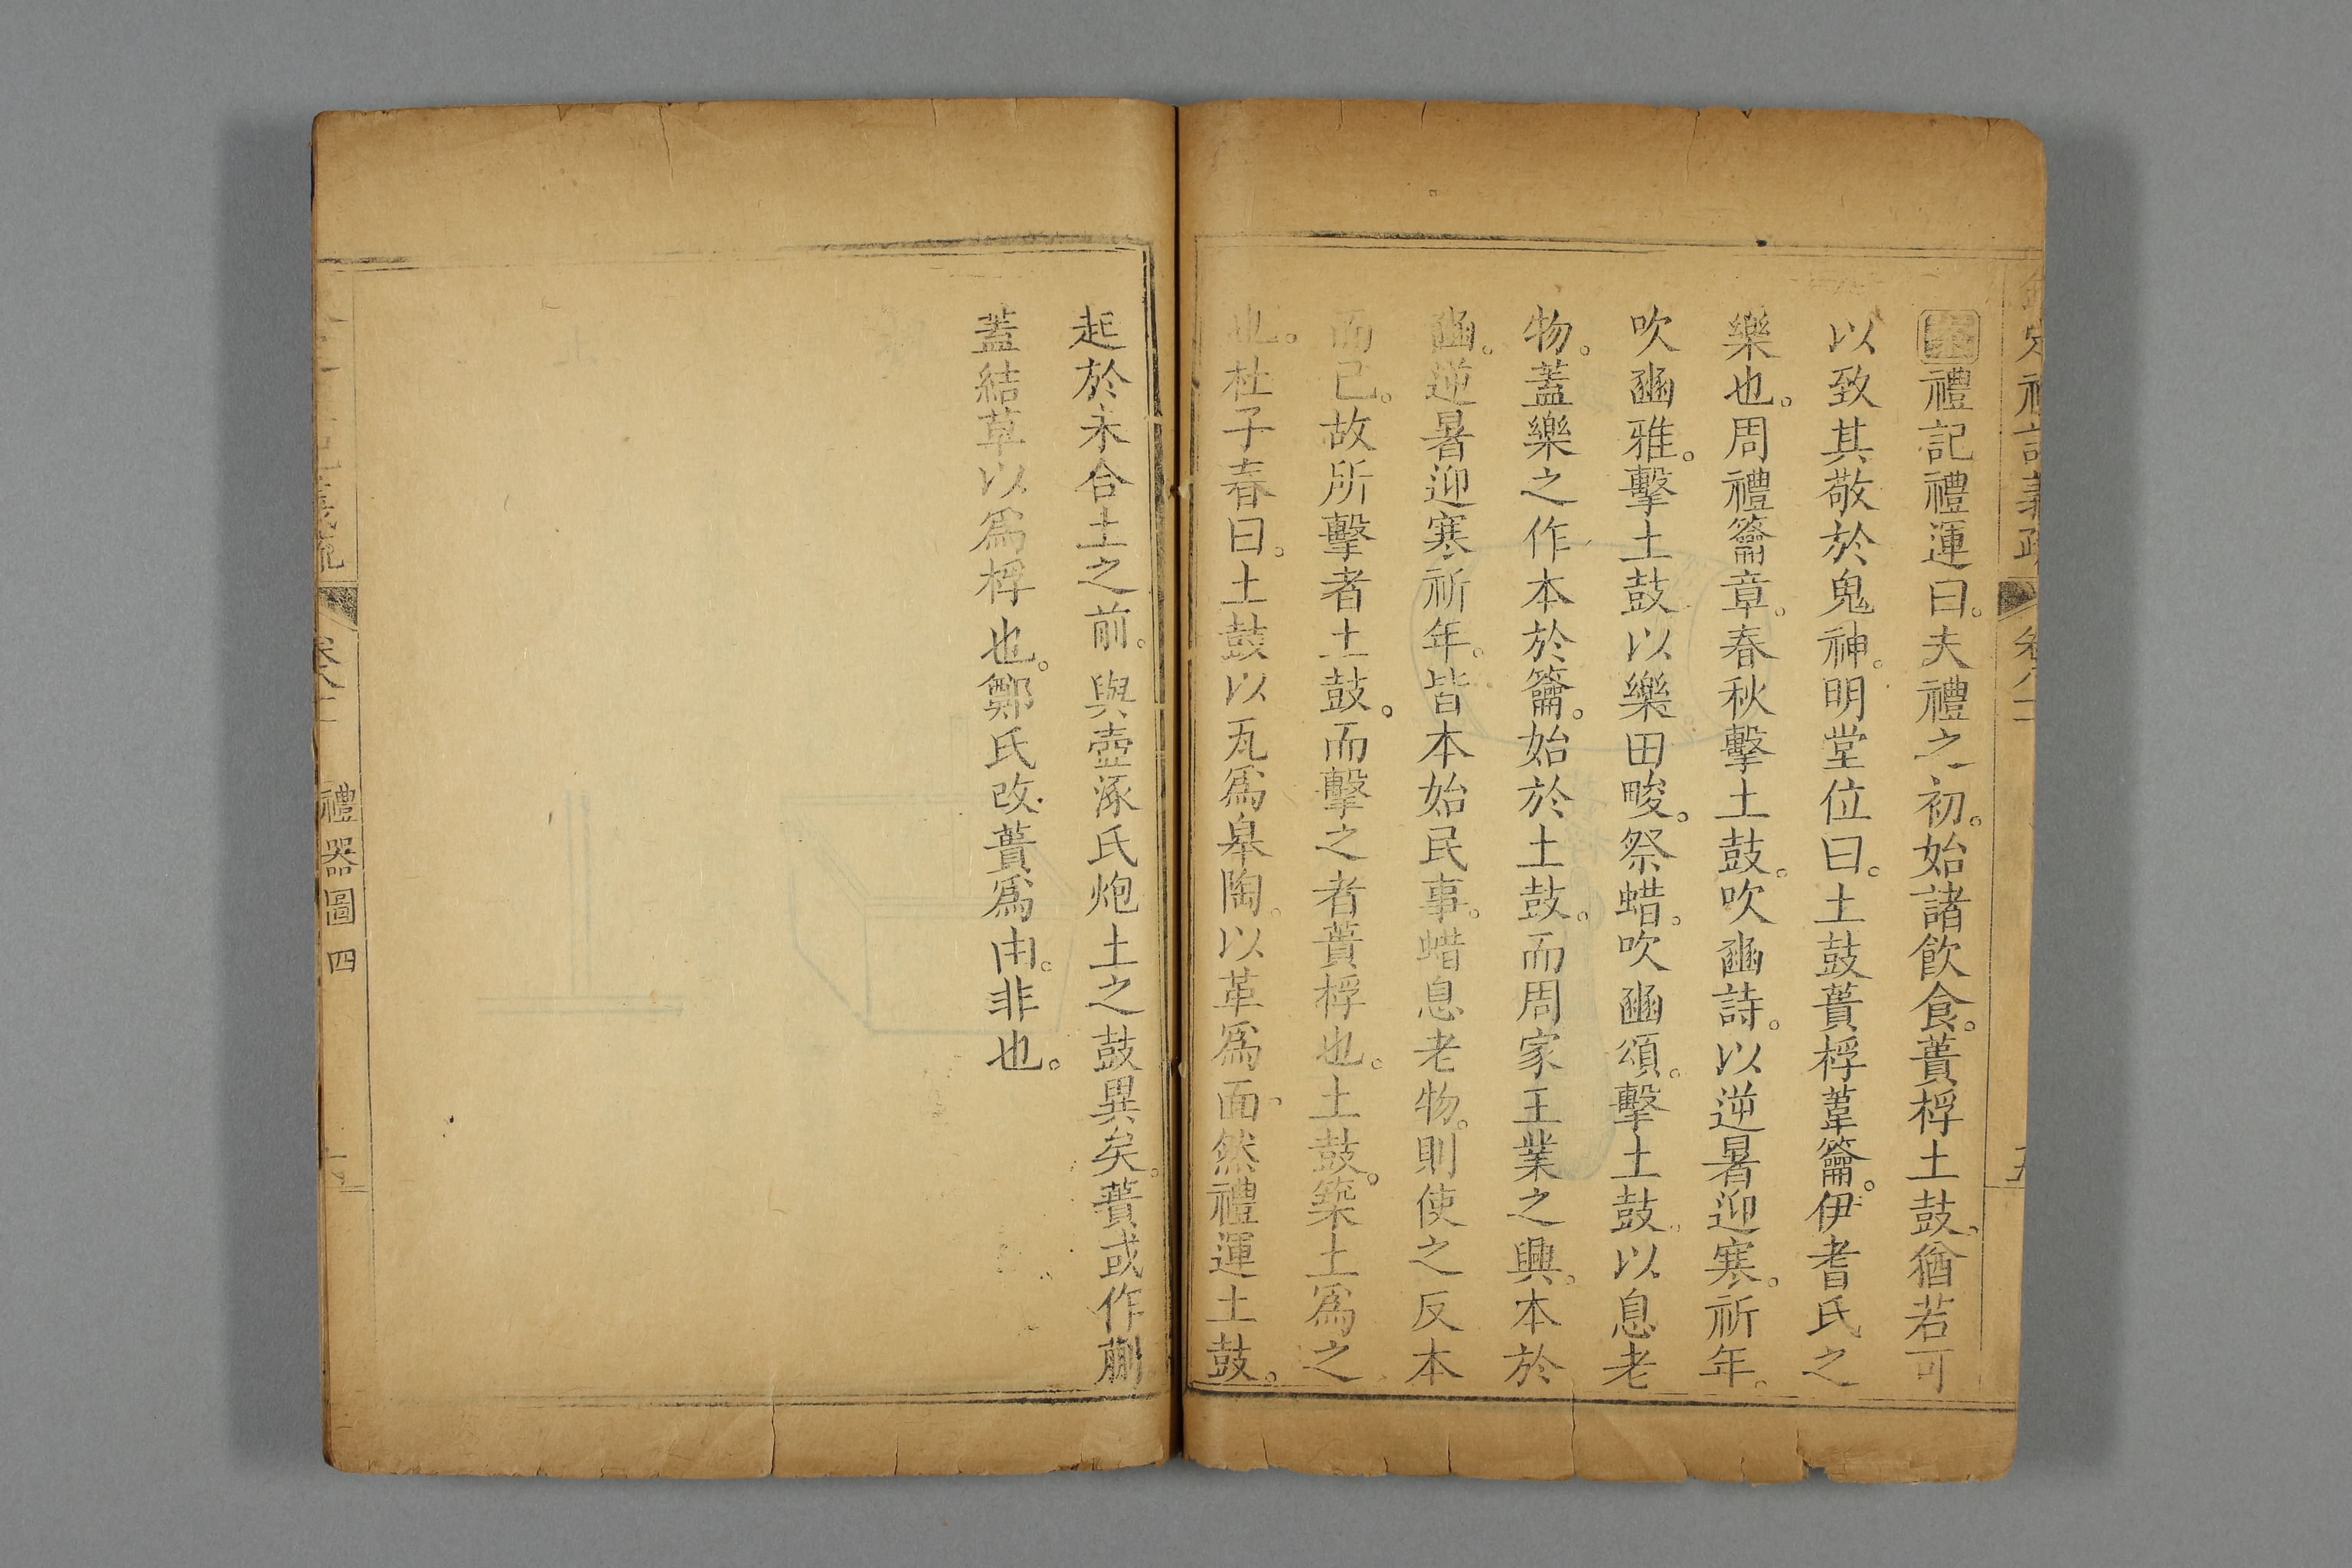 禮記禮運曰。夫禮之初。始諸飲食。蕢桴土鼓。猶若可
以致其敬於鬼神。明堂位曰。土鼓蕢桴葦籥。伊耆氏之
樂也。周禮籥章。春秋擊土鼓。吹豳詩。以逆暑迎寒。祈年。
吹豳雅。擊土鼓以樂田畯。祭蜡。吹豳頌。擊土鼓。以息老
物。蓋樂之作本於籥。始於土鼓。而周家王業之興。本於
豳。逆暑迎寒祈年。皆本始民事。蜡息老物。則使之反本
而已。故所擊者土鼓。而擊之者蕢桴也。土鼓。築土爲之
也。杜子春曰。土鼓以瓦爲皋陶。以革爲面。然禮運土鼓。
起於未合土之前。與壺涿氏炮土之鼓異矣。蕢或作蒯
蓋結草以爲桴也。鄭氏改蕢爲甴。非也。
禮器圖四